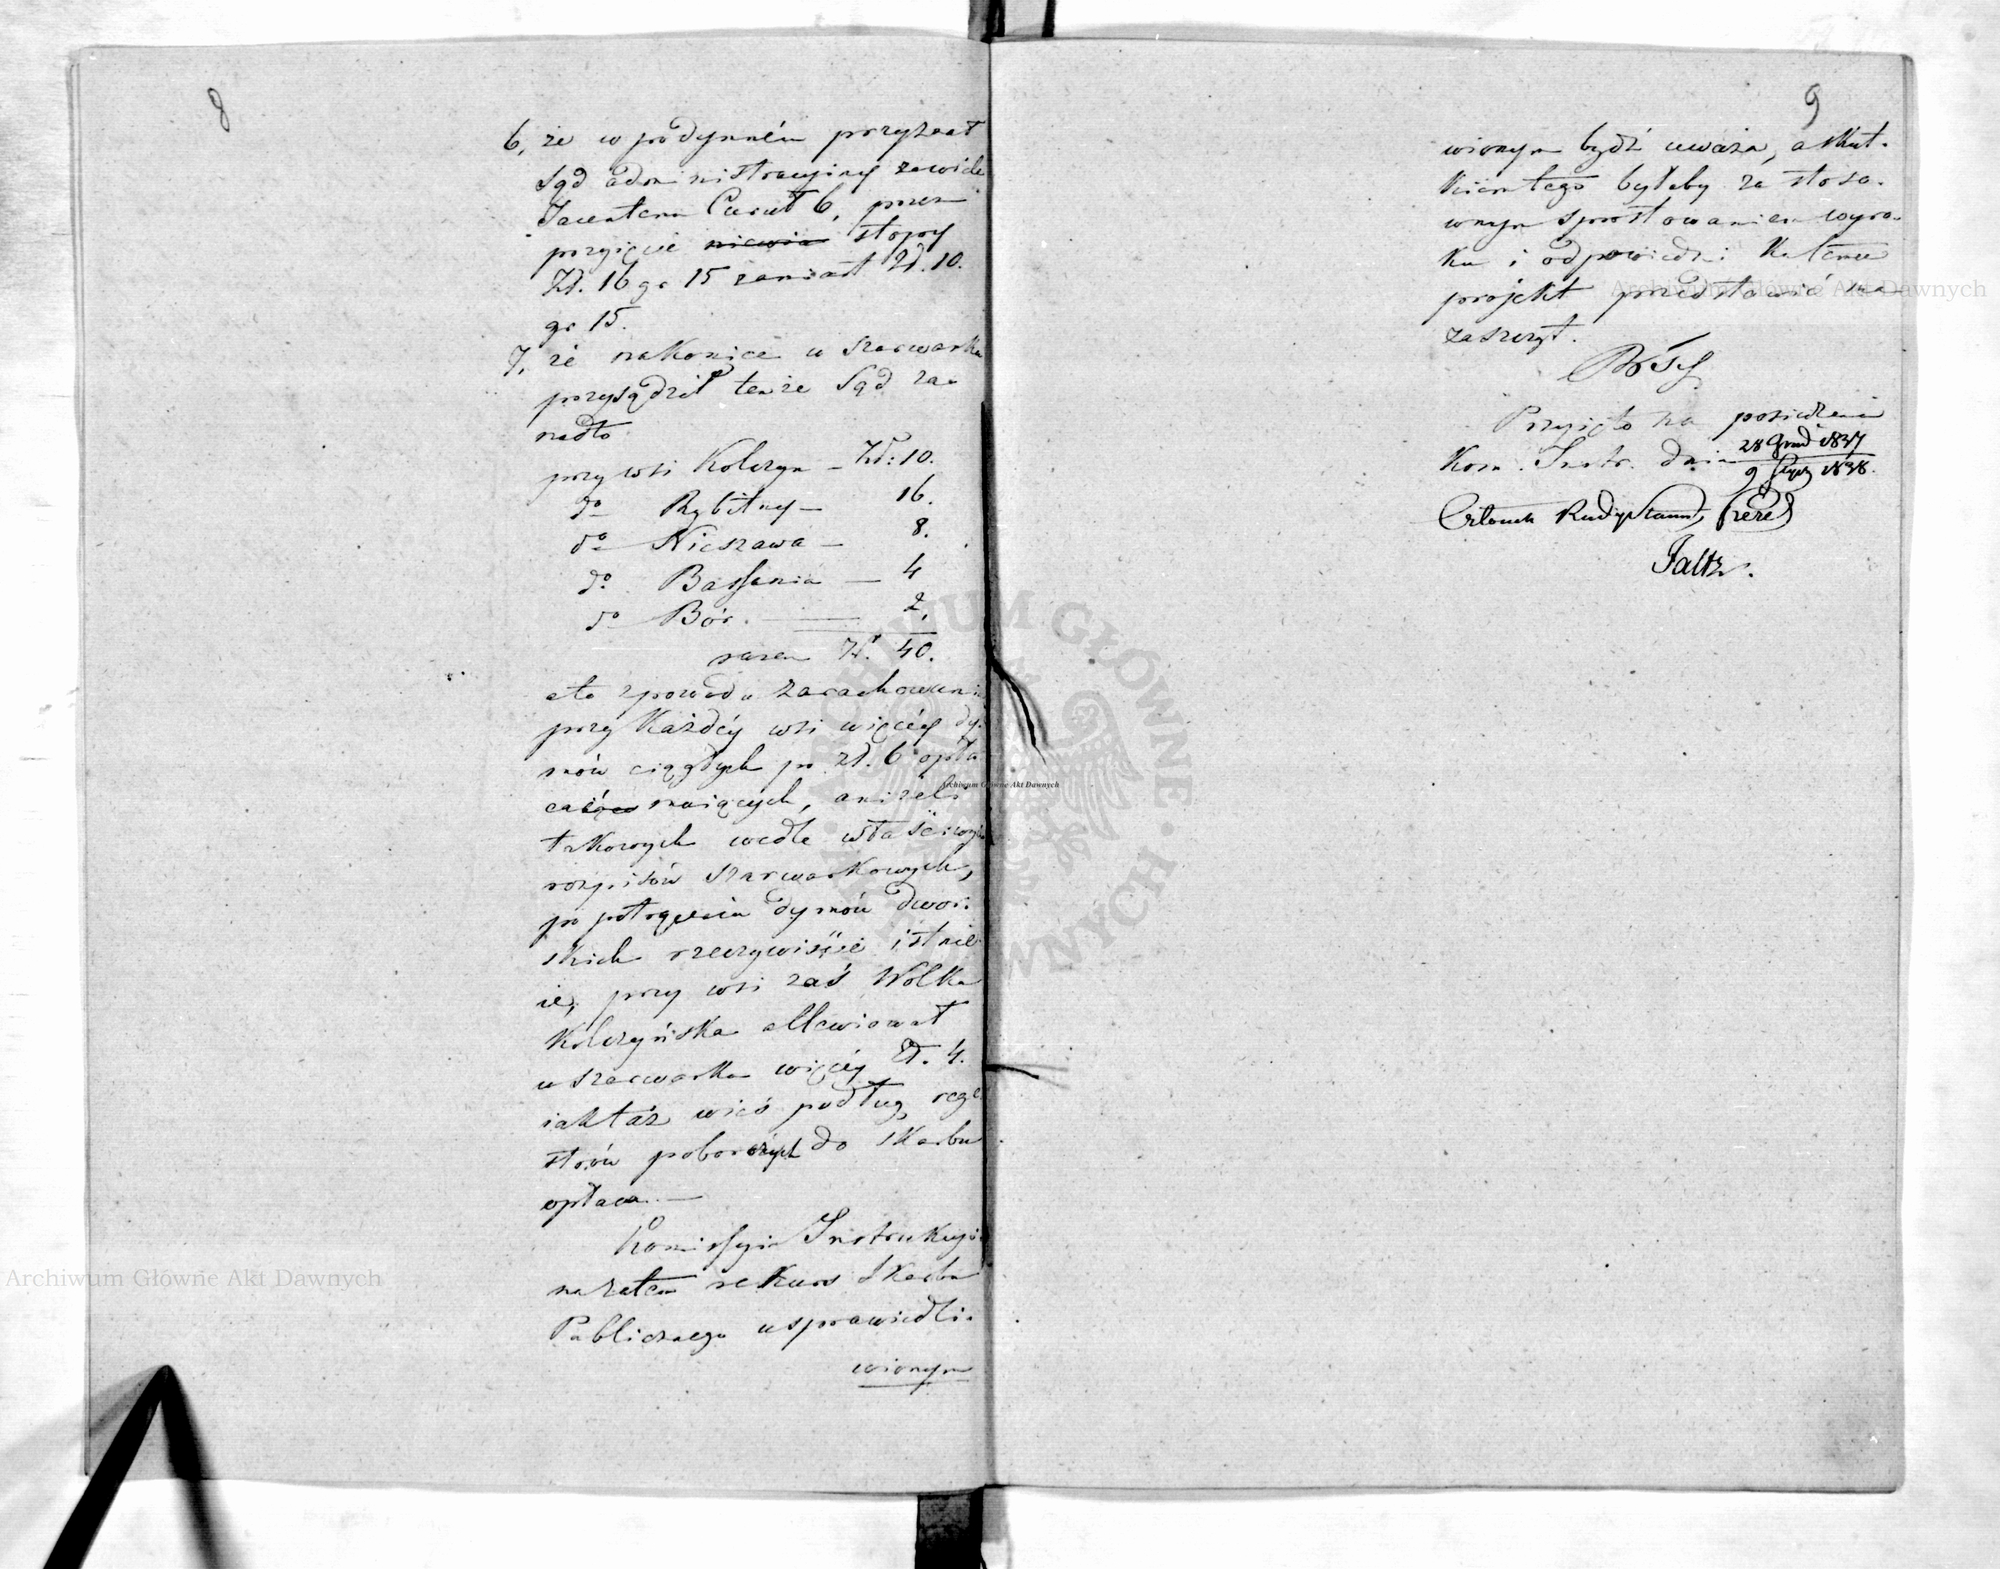 8
6, że w podymném przyznał
Sąd administracyiny zawiele
Jacentemu 6, przez
przyięcie stopy
Zł. 16 gr 15 zamiast Zł. 10.
gr 15.
7, że nakoniec w szarwarku
przysądził tenże Sąd za-
nadto
przy wsi Kolczyn – Zł: 10.
do Rybitwy – 16.
do Nieszawa – 8.
do Bassonia — 4
do Bór. — 2.
razem Zł. 40.
a to z powodu zarachowani
przy każdéy wsi więcéy dy-
mów ciągłych po zł. 6 opła
cać maiących, aniżeli
takowych wedle właściwych
rozpisów szarwarkowych,
po potrąceniu dymów dwor-
skich rzeczywiście istnie-
ie, przy wsi zaś Wólka
Kolczyńska allewiował
w szarwarku więcéy Zł. 4.
iak taż wieś podług rege
strów poborowych do Skarbu
opłaca. —
Kommissyia Instrukcyi
na zatem rekurs Skarbu
Publicznego usprawiedli-
wionym
9
wionym bydź uważa, a skut-
kiem tego byłaby za stoso-
wnym sprostowaniem wyro-
ku i odpowiedni ku temu
projekt przedstawić ma
zaszczyt.
Przyięto na posiedzeniu
Kom. Instr. dnia 28 Grud 1837
9 Stycz 1838.
Członek Rady Stanu, Prezes
Faltz.
Archiwum Główne Akt Dawnych
Archiwum Główne Akt Dawnych
Archiwum Główne Akt Dawnych
ARCHIWUM GŁÓWNE AKT DAWNYCH